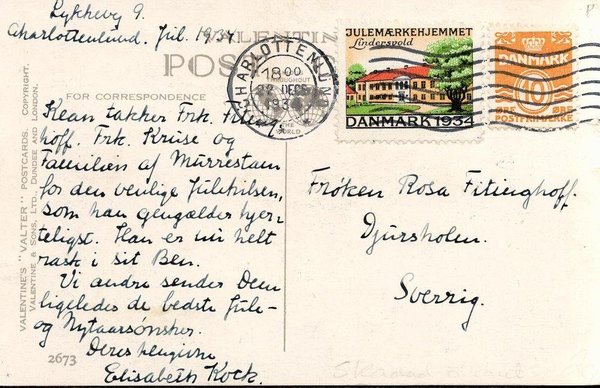 Lykkevej 9.
Charlottenlund. Jul. 1934
VALENTIN
POS
FOR CORRESPONDENCE
CHARLOTTENLUND
18 00
22 DEC
193
THROUGHOUT
THE
WORLD
JULEMÆRKEHJEMMET
Lindersvold
DANMARK 1934
DANMARK
10
ØRE ØRE
POSTFRIMÆRKE
Kean takker Frk. Fiting-
hoff. Frk. Kruse og
Familien af Murrestam
for den venlige Julehilsen,
som han gengælder hjer-
teligst. Han er nu helt
rask i sit Ben.
Vi andre sender Dem
ligeledes de bedste Jule-
og Nytaarsønsker.
Deres hengivne
Elisabeth Kock.
Fröken Rosa Fitinghoff.
Djursholm.
Sverrig.
VALENTINE'S "VALTER" POSTCARDS. COPYRIGHT.
VALENTINE & SONS, LTD., DUNDEE AND LONDON.
2673